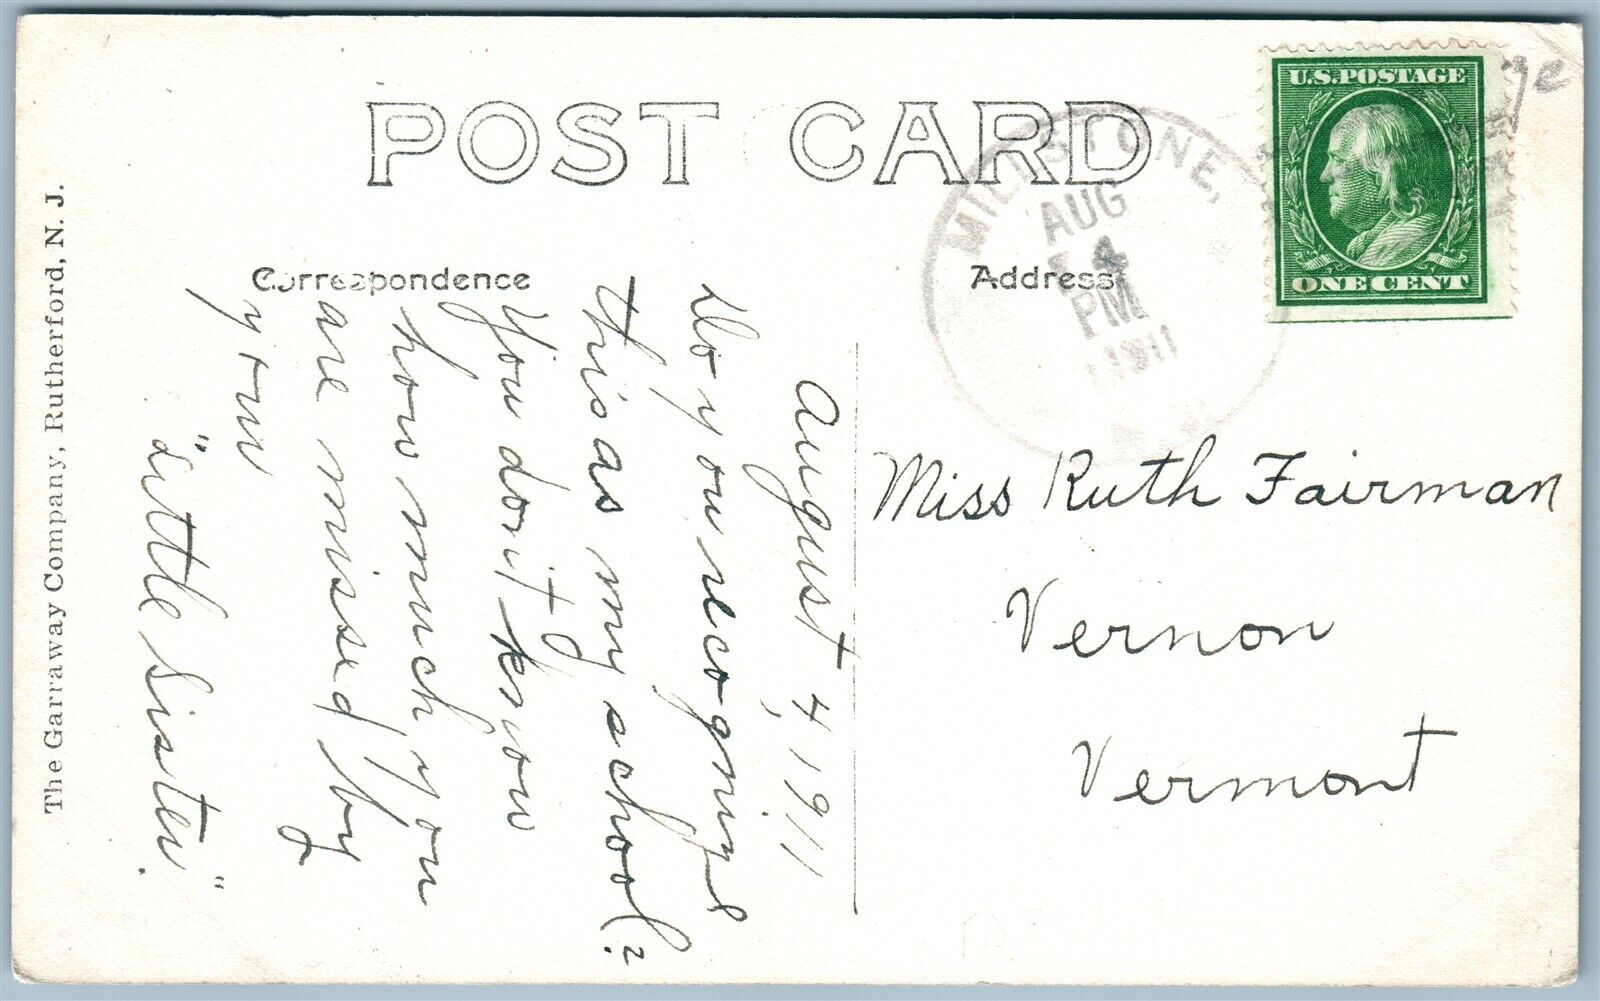 POST CARD
U.S.POSTAGE
ONE CENT
MILLSTONE,
AUG
4
PM
1911
Correspondence
Address
August 4, 1911
Do you recognize
this as my school?
You don't know
how much you
are missed by
your
"Little Sister."
Miss Ruth Fairman
Vernon
Vermont
The Garraway Company, Rutherford, N. J.